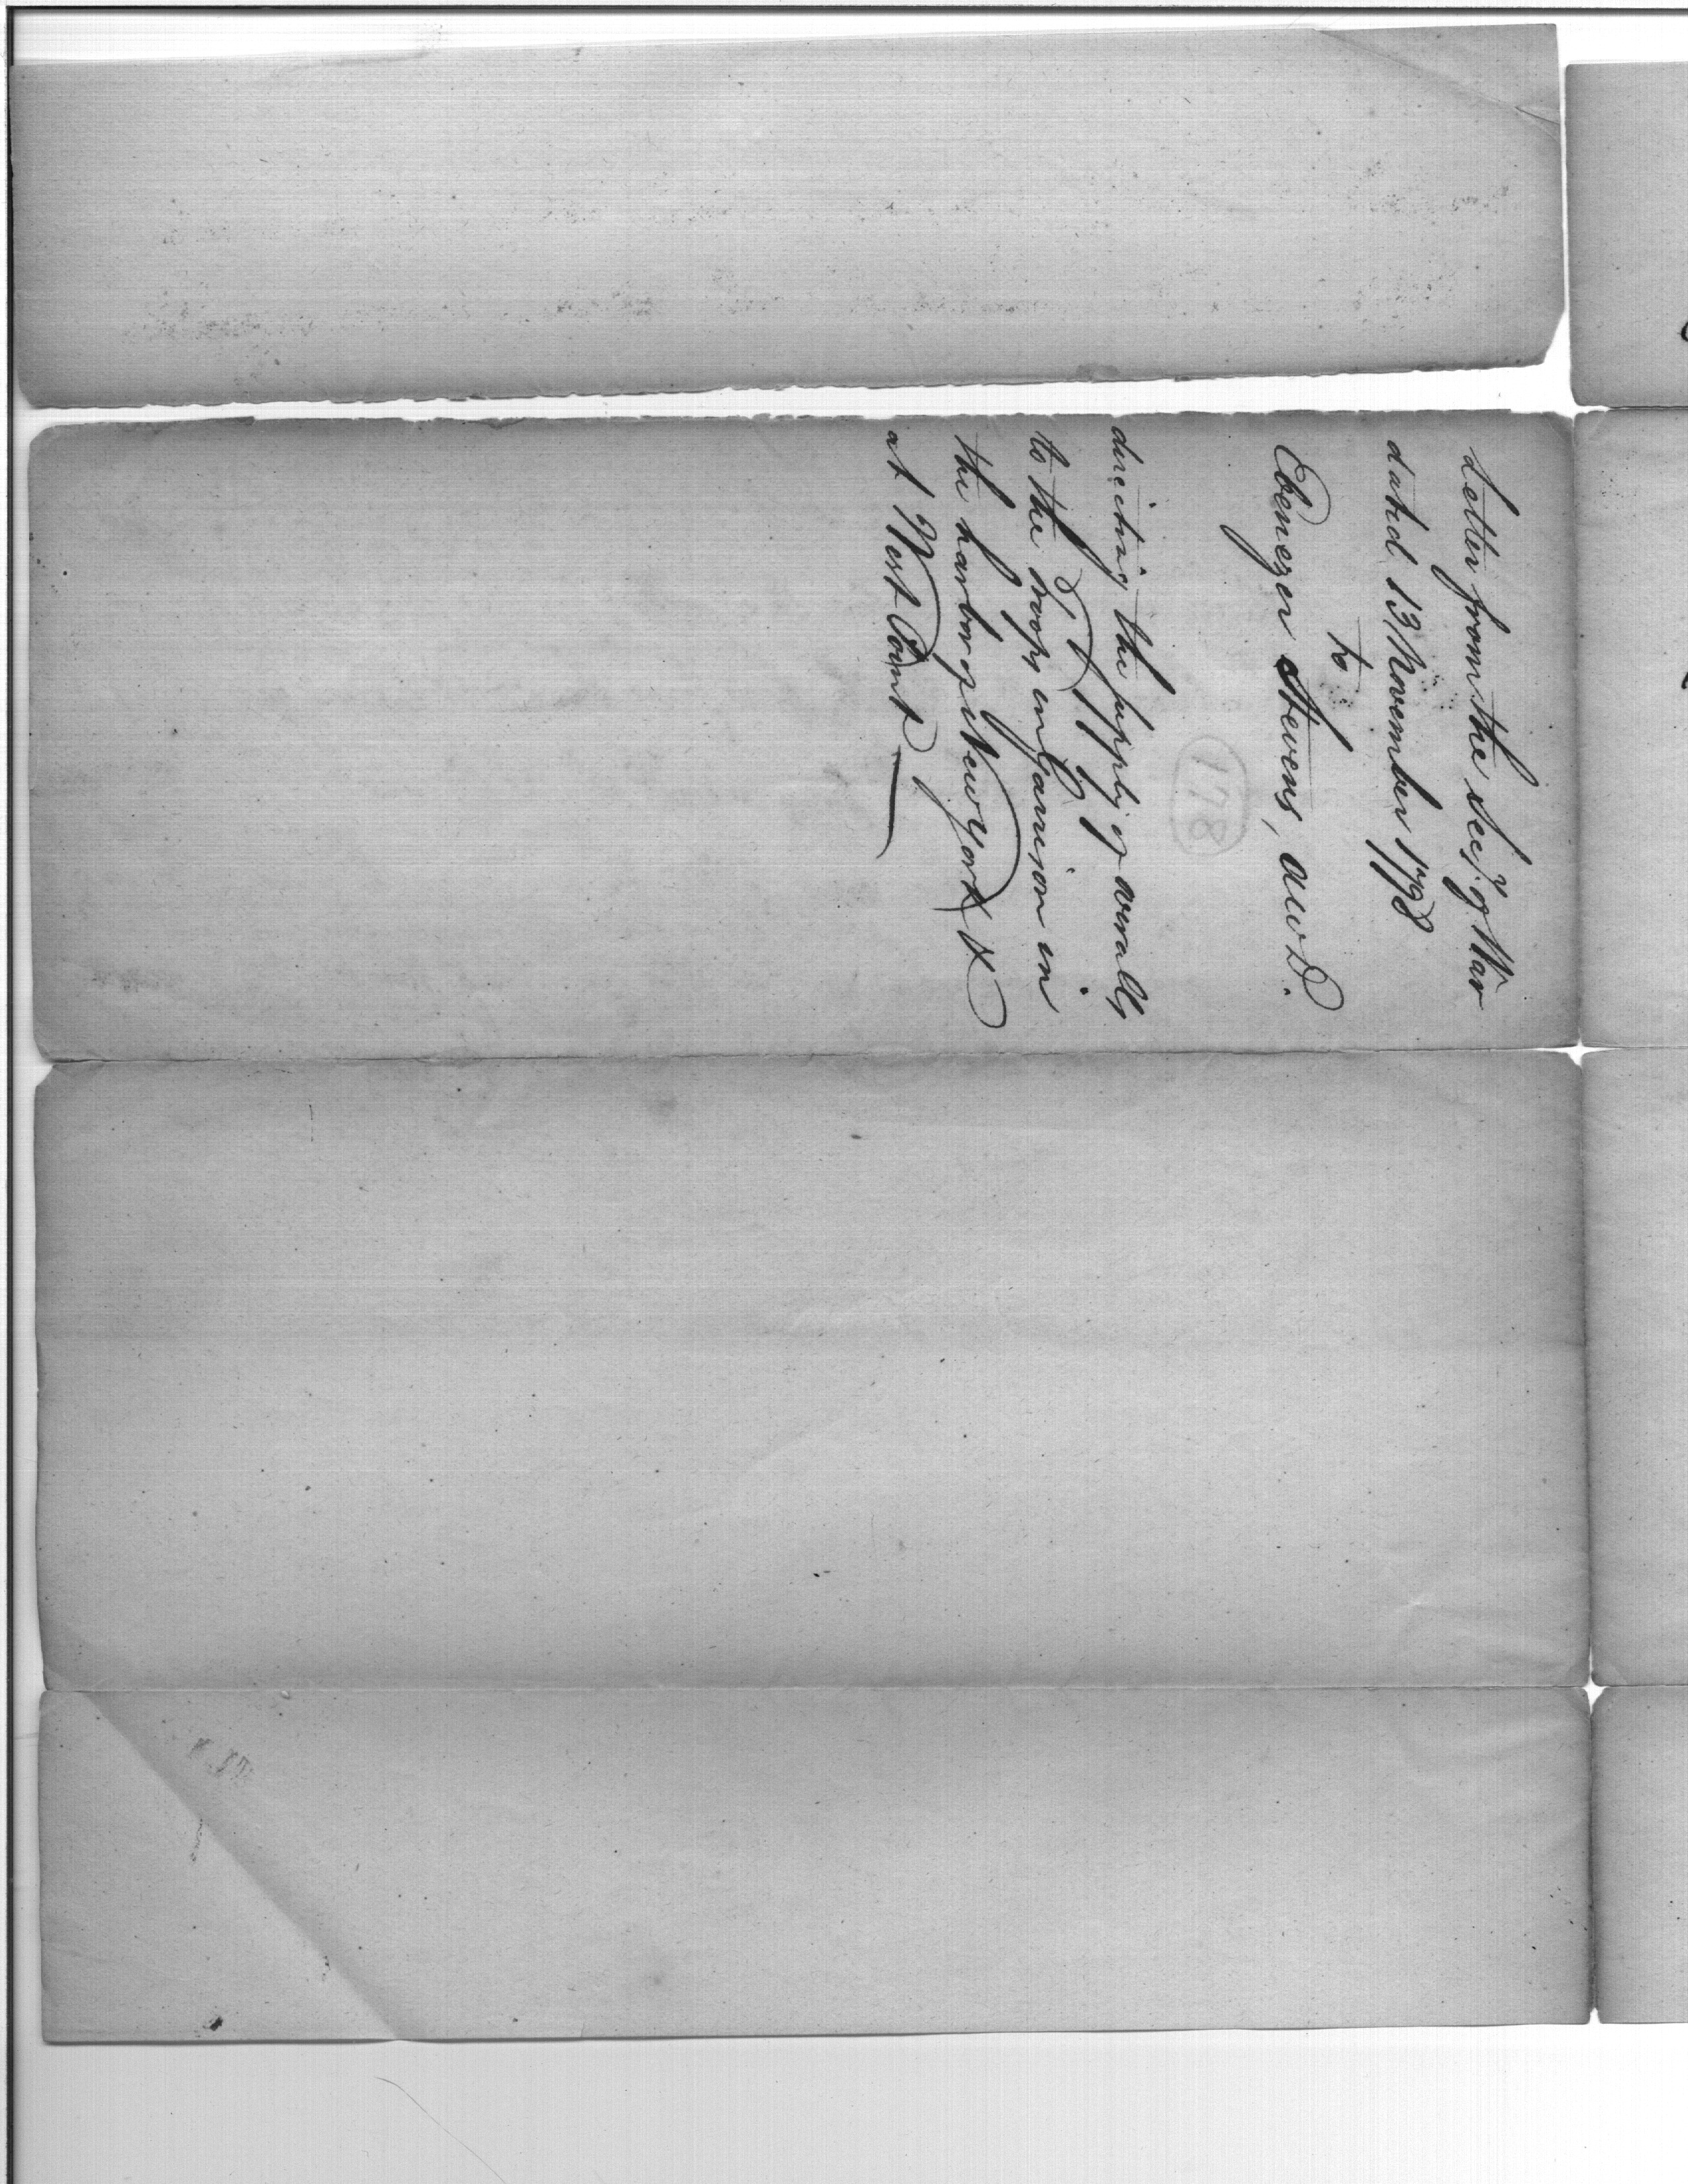 Letter from the Secy. of War
dated 13 November 1798
to
Ebenezer Stevens, AWD.
178
directing the supply of overalls
to the troops in garrison in
the harbor of New York &
at West Point